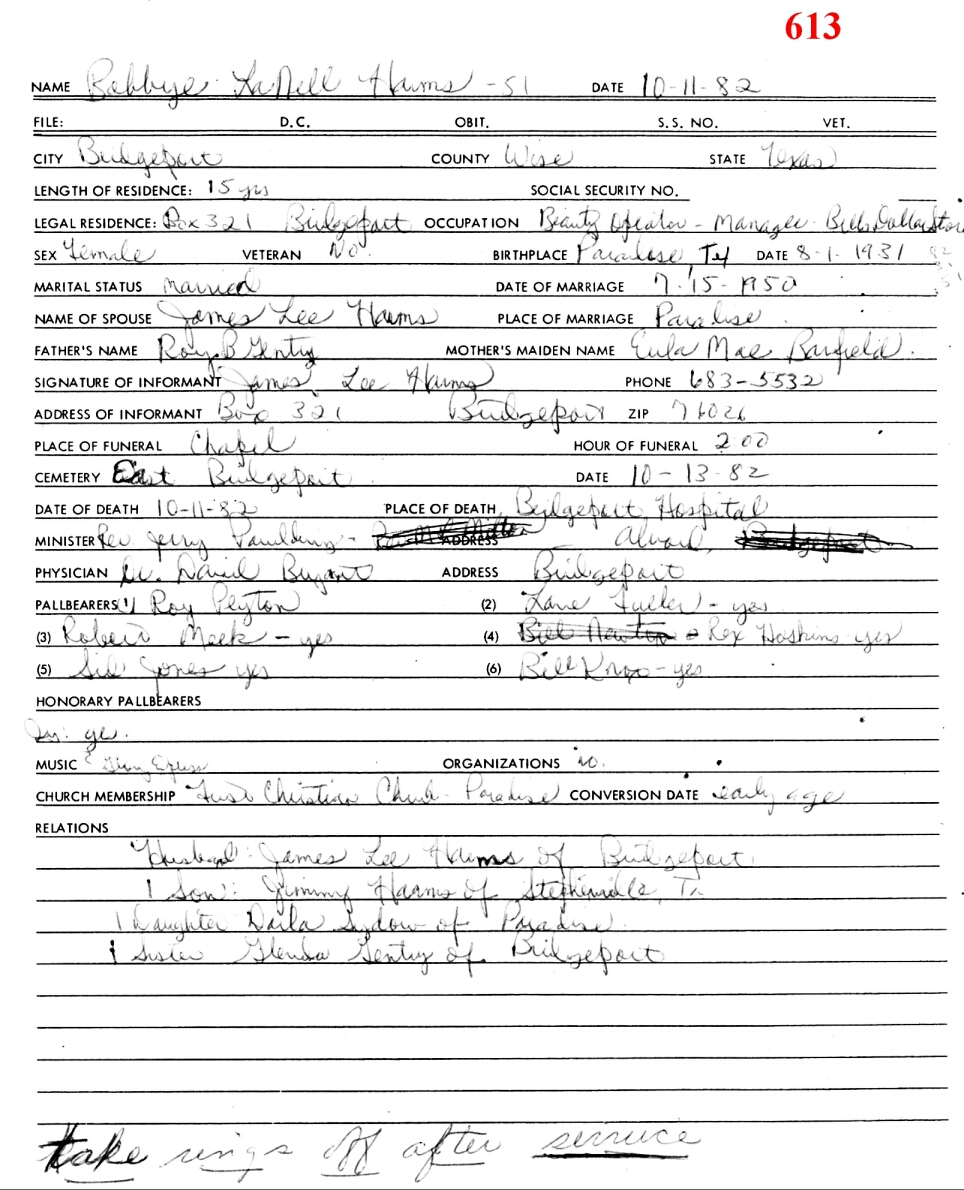 613
NAME Bobbye LaNell Harms - 51 DATE 10-11-82
FILE: D.C. OBIT. S.S. NO. VET.
CITY Bridgeport COUNTY Wise STATE Texas
LENGTH OF RESIDENCE: 15 yrs SOCIAL SECURITY NO.
LEGAL RESIDENCE: Box 321 Bridgeport OCCUPATION Beauty Operator - Manager - Bill's Dollar Store
SEX Female VETERAN No. BIRTHPLACE Paradise Tx DATE 8-1-1931
MARITAL STATUS married DATE OF MARRIAGE 7-15-1950
NAME OF SPOUSE James Lee Harms PLACE OF MARRIAGE Paradise
FATHER'S NAME Roy B Gentry MOTHER'S MAIDEN NAME Eula Mae Barfield.
SIGNATURE OF INFORMANT James Lee Harms PHONE 683-5532
ADDRESS OF INFORMANT Box 321 Bridgeport ZIP 76026
PLACE OF FUNERAL Chapel HOUR OF FUNERAL 2:00
CEMETERY East Bridgeport DATE 10-13-82
DATE OF DEATH 10-11-82 PLACE OF DEATH Bridgeport Hospital
MINISTER Rev. Jerry - ADDRESS Alvord,
PHYSICIAN Dr. David Bryant ADDRESS Bridgeport
PALLBEARERS (1) Roy Peyton (2) Lane Fuller - yes
(3) Robert Meek - yes (4) Bill Newton Rex Hoskins - yes
(5) Sid Jones yes (6) Bill Knox - yes
HONORARY PALLBEARERS
MUSIC ORGANIZATIONS no.
CHURCH MEMBERSHIP First Christian Church - Paradise CONVERSION DATE early age
RELATIONS
Husband: James Lee Harms of Bridgeport
1 Son: Jimmy Harms of Stephenville, Tx
1 Daughter Darla Sydow of Paradise
1 Sister Glenda Gentry of Bridgeport
take rings off after service